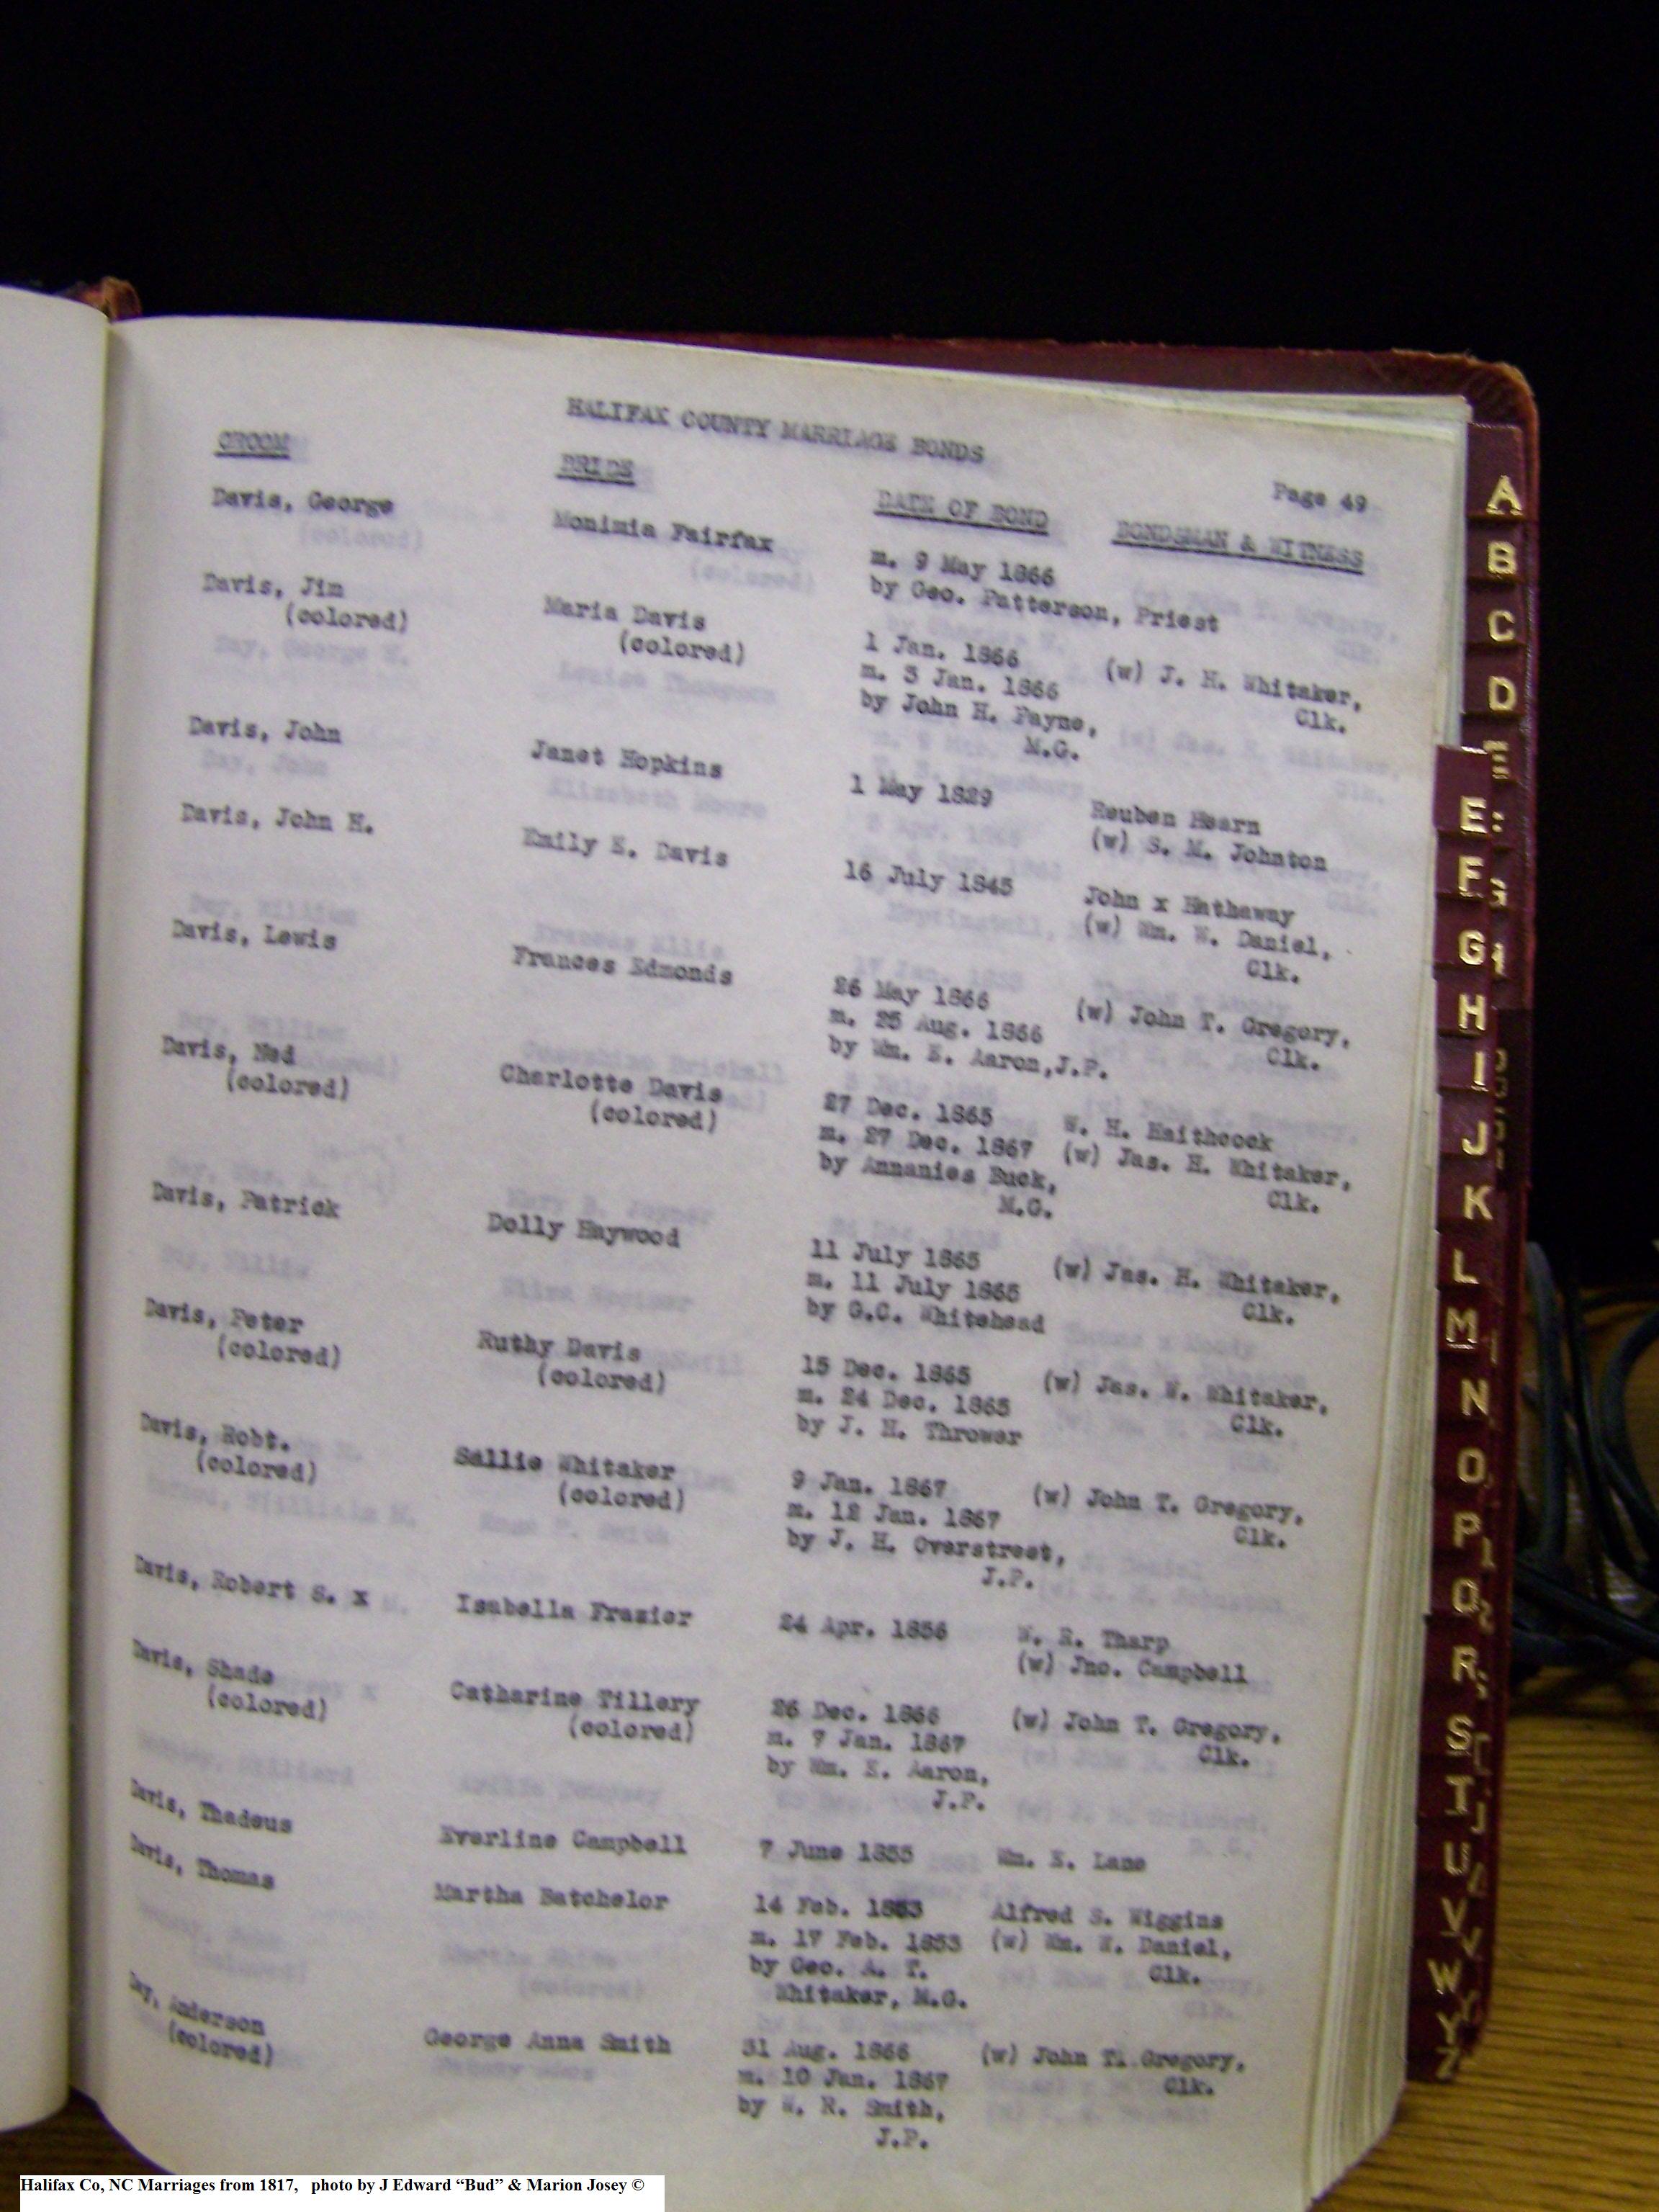 HALIFAX COUNTY MARRIAGE BONDS
Page 49
GROOM BRIDE DATE OF BOND BONDSMAN & WITNESS
Davis, George Monimia Fairfax m. 9 May 1866
by Geo. Patterson, Priest
Davis, Jim Maria Davis 1 Jan. 1866 (w) J. H. Whitaker,
(colored) (colored) m. 3 Jan. 1866 Clk.
by John H. Payne,
M.G.
Davis, John Janet Hopkins 1 May 1829 Reuben Hearn
(w) S. M. Johnton
Davis, John H. Emily E. Davis 16 July 1845 John x Hathaway
(w) Wm. W. Daniel,
Clk.
Davis, Lewis Frances Edmonds 26 May 1866 (w) John T. Gregory,
m. 25 Aug. 1866 Clk.
by Wm. E. Aaron,J.P.
Davis, Ned Charlotte Davis 27 Dec. 1865 W. H. Haithcock
(colored) (colored) m. 27 Dec. 1867 (w) Jas. H. Whitaker,
by Annanies Buck, Clk.
M.G.
Davis, Patrick Dolly Haywood 11 July 1865 (w) Jas. H. Whitaker,
m. 11 July 1865 Clk.
by G.C. Whitehead
Davis, Peter Ruthy Davis 15 Dec. 1865 (w) Jas. W. Whitaker,
(colored) (colored) m. 24 Dec. 1865 Clk.
by J. H. Thrower
Davis, Robt. Sallie Whitaker 9 Jan. 1867 (w) John T. Gregory,
(colored) (colored) m. 12 Jan. 1867 Clk.
by J. H. Overstreet,
J.P.
Davis, Robert S. x Isabella Frazier 24 Apr. 1856 W. R. Tharp
(w) Jno. Campbell
Davis, Shade Catharine Tillery 26 Dec. 1866 (w) John T. Gregory,
(colored) (colored) m. 7 Jan. 1867 Clk.
by Wm. E. Aaron,
J.P.
Davis, Thadeus Everline Campbell 7 June 1855 Wm. E. Lane
Davis, Thomas Martha Batchelor 14 Feb. 1853 Alfred S. Wiggins
m. 17 Feb. 1853 (w) Wm. W. Daniel,
by Geo. A. T. Clk.
Whitaker, M.G.
Day, Anderson George Anna Smith 31 Aug. 1866 (w) John T. Gregory,
(colored) m. 10 Jan. 1867 Clk.
by W. R. Smith,
J.P.
A
B
C
D
E
E
F
G
H
I
J
K
L
M
N
O
P
Q
R
S
T
U
V
W
Y
Z
Halifax Co, NC Marriages from 1817, photo by J Edward “Bud” & Marion Josey ©